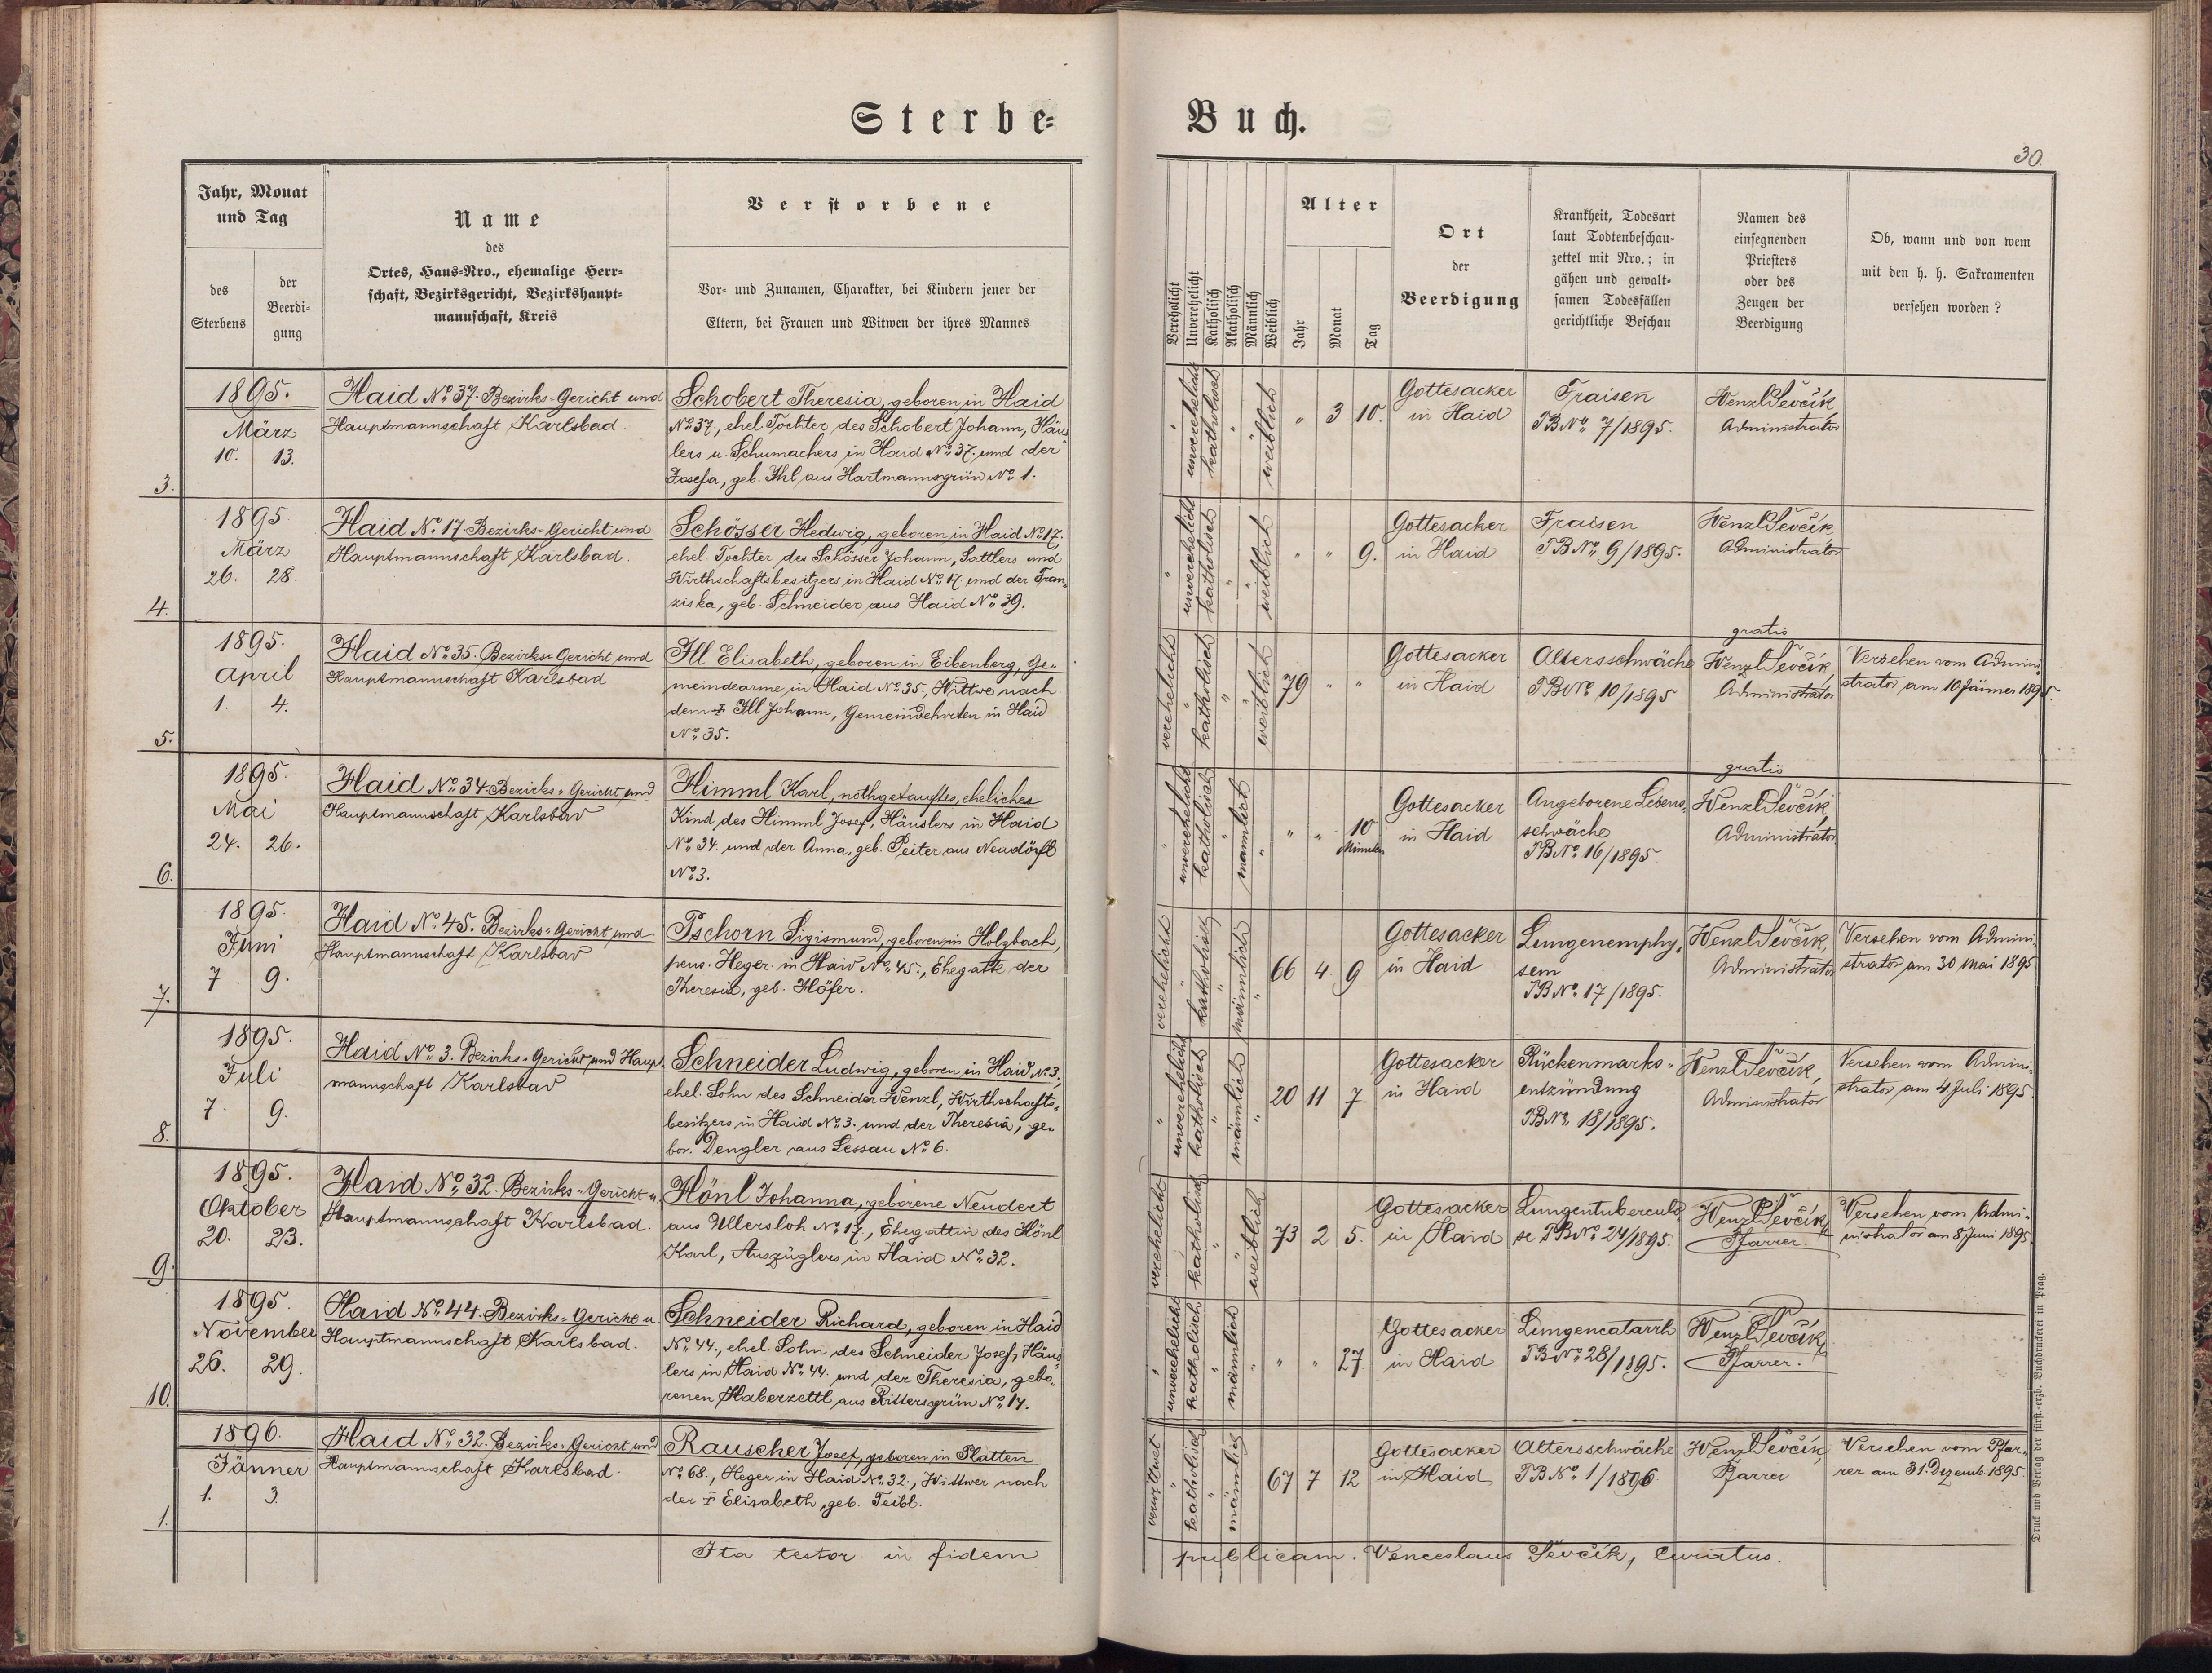 Sterbe=
Jahr, Monat
und Tag
des
Sterbens
der
Beerdi=
gung
Name
des
Ortes, Haus=Nro., ehemalige Herr=
schaft, Bezirksgericht, Bezirkshaupt=
mannschaft, Kreis
Verstorbene
Vor= und Zunamen, Charakter, bei Kindern jener der
Eltern, bei Frauen und Witwen der ihres Mannes
3.
1895.
März
10. 13.
Haid No 37. Bezirks=Gericht und
Hauptmannschaft Karlsbad.
Schobert Theresia, geboren in Haid
No 37., ehel. Tochter des Schobert Johann, Häus
lers u. Schumachers in Haid No 37. und der
Josefa, geb. Ihl aus Hartmannsgrün No 1.
4.
1895.
März
26. 28.
Haid No 17. Bezirks=Gericht und
Hauptmannschaft Karlsbad.
Schösser Hedwig, geboren in Haid No 17.
ehel. Tochter des Schösser Johann, Sattlers und
Wirthschaftsbesitzers in Haid No 17. und der Fran„
ziska, geb. Schneider aus Haid No 39.
5.
1895.
April
1. 4.
Haid No 35. Bezirks=Gericht und
Hauptmannschaft Karlsbad
Ill Elisabeth, geboren in Eibenberg, Ge„
meindearme in Haid No 35., Wittwe nach
dem † Ill Johann, Gemeindehirten in Haid
No 35.
6.
1895.
Mai
24. 26.
Haid No 34 Bezirks=Gericht und
Hauptmannschaft Karlsbad
Himml Karl, nothgetauftes, eheliches
Kind des Himml Josef, Häuslers in Haid
No 34. und der Anna, geb. Peiter aus Neudörfl
No 3.
7.
1895.
Juni
7. 9.
Haid No 45. Bezirks=Gericht und
Hauptmannschaft Karlsbad
Pschorn Sigismund, geboren in Holzbach,
pens. Heger in Haid No 45., Ehegatte der
Theresia, geb. Höfer.
8.
1895.
Juli
7. 9.
Haid No 3. Bezirks=Gericht und Haupt
mannschaft Karlsbad
Schneider Ludwig, geboren in Haid No 3.,
ehel. Sohn des Schneider Wenzl, Wirthschafts„
besitzers in Haid No 3. und der Theresia, ge„
bor. Dengler aus Lessau No 6.
9.
1895.
Oktober
20. 23.
Haid No 32. Bezirks=Gericht u.
Hauptmannschaft Karlsbad.
Hönl Johanna, geborene Neudert
aus Ullersloh No 17., Ehegattin des Hönl
Karl, Auszüglers in Haid No 32.
10.
1895.
November
26. 29.
Haid No 44. Bezirks=Gericht u.
Hauptmannschaft Karlsbad.
Schneider Richard, geboren in Haid
No 44., ehel. Sohn des Schneider Josef, Häus
lers in Haid No 44. und der Theresia, gebo„
renen Haberzettl aus Rittersgrün No 14.
1.
1896.
Jänner
1. 3.
Haid No 32. Bezirks=Gericht und
Hauptmannschaft Karlsbad.
Rauscher Josef, geboren in Platten
No 68., Heger in Haid No 32., Wittwer nach
der † Elisabeth, geb. Teibl.
Ita testor in fidem
Buch.
30.
Verehelicht
Unverehelicht
Katholisch
Akatholisch
Männlich
Weiblich
Alter
Jahr
Monat
Tag
Ort
der
Beerdigung
Krankheit, Todesart
laut Todtenbeschau=
zettel mit Nro.; in
gähen und gewalt=
samen Todesfällen
gerichtliche Beschau
Namen des
einsegnenden
Priesters
oder des
Zeugen der
Beerdigung
Ob, wann und von wem
mit den h. h. Sakramenten
versehen worden?
" unverehelicht katholisch " " weiblich " 3 10.
Gottesacker
in Haid
Fraisen
TB No 7/1895.
Wenzl Ševčík
Administrator
" unverehelicht katholisch " " weiblich " " 9.
Gottesacker
in Haid
Fraisen
TB No 9/1895.
Wenzl Ševčík
Administrator
verehelicht " katholisch " " weiblich 79 " "
Gottesacker
in Haid
Altersschwäche
TB No 10/1895
gratis
Wenzl Ševčík,
Administrator
Versehen vom Admini„
strator am 10 Jänner 1895.
" unverehelicht katholisch " männlich " " " 10
Minuten
Gottesacker
in Haid
Angeborene Lebens„
schwäche
TB No 16/1895
gratis
Wenzl Ševčík
Administrator
verehelicht " katholisch " männlich " 66 4 9
Gottesacker
in Haid
Lungenemphy„
sem
TB No 17/1895.
Wenzl Ševčík,
Administrator
Versehen vom Admini„
strator am 30 Mai 1895
" unverehelicht katholisch " männlich " 20 11 7.
Gottesacker
in Haid
Rückenmarks„
entzündung
TB No 18/1895.
Wenzl Ševčík,
Administrator
Versehen vom Admini„
strator am 4 Juli 1895
verehelicht " katholisch " " weiblich 73 2 5.
Gottesacker
in Haid
Lungentuberculo„
se TB No 24/1895.
Wenzl Ševčík
Pfarrer.
Versehen vom Admi„
nistrator am 8 Juni 1895
" unverehelicht katholisch " männlich " " " 27
Gottesacker
in Haid
Lungencatarrh
TB No 28/1895.
Wenzl Ševčík
Pfarrer.
verwitwet " katholisch " männlich 67 7 12
Gottesacker
in Haid
Altersschwäche
TB No 1/1896
Wenzl Ševčík
Pfarrer
Versehen vom Pfar„
rer am 31. Dezemb. 1895.
publicam. Venceslaus Ševčík, curatus.
Druck und Verlag der fürst.-erzb. Buchdruckerei in Prag.